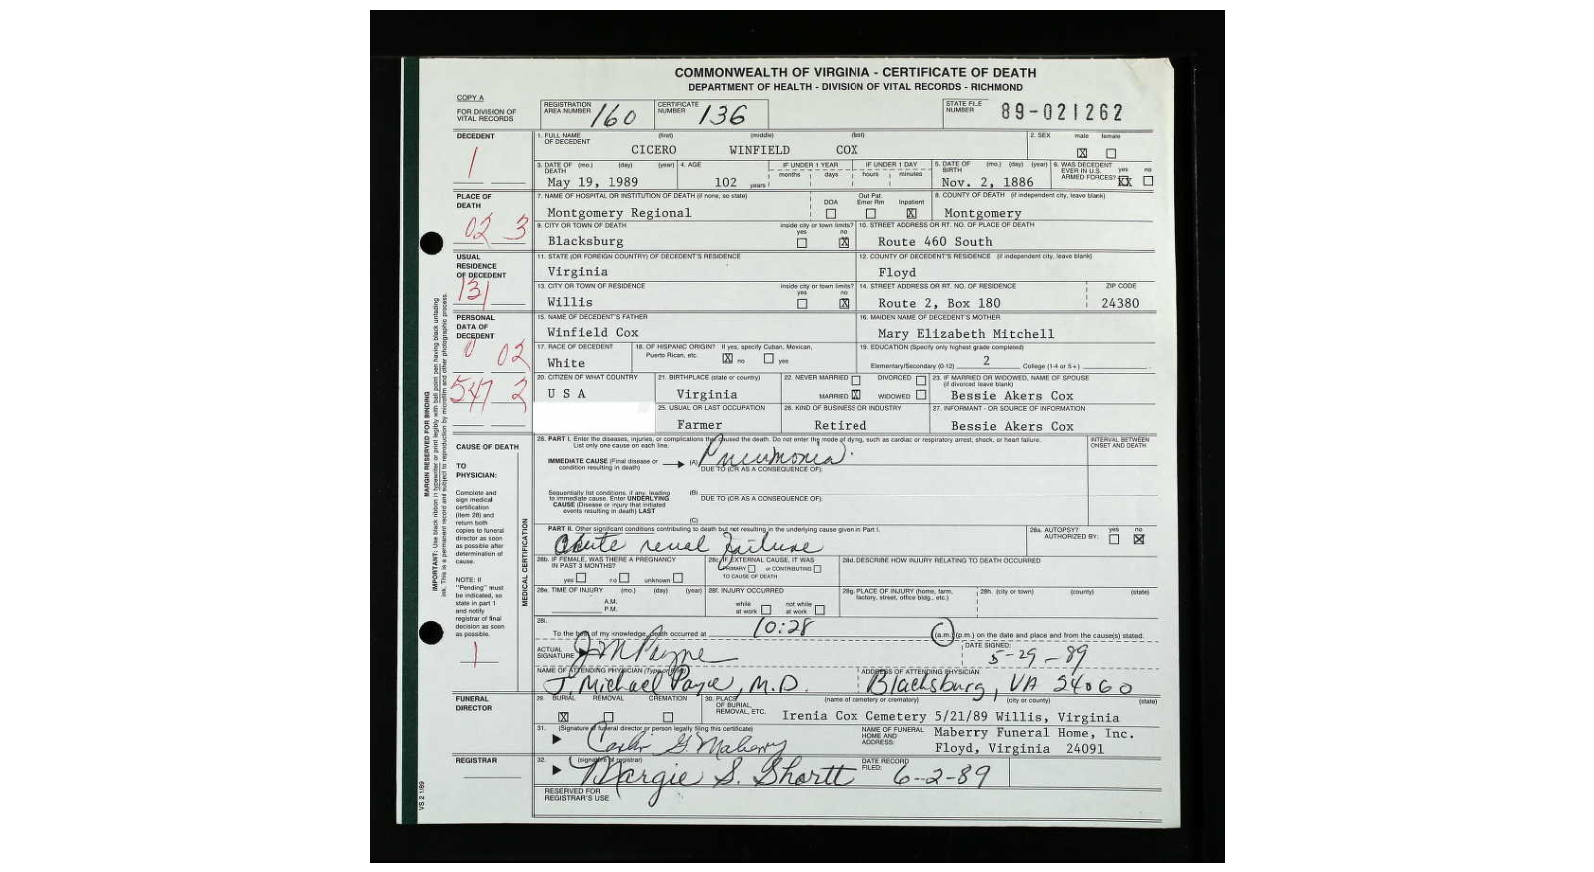 COMMONWEALTH OF VIRGINIA - CERTIFICATE OF DEATH
DEPARTMENT OF HEALTH - DIVISION OF VITAL RECORDS - RICHMOND
COPY A
FOR DIVISION OF VITAL RECORDS
REGISTRATION AREA NUMBER 160
CERTIFICATE NUMBER 136
STATE FILE NUMBER 89-021262
DECEDENT
1
1. FULL NAME OF DECEDENT (first) (middle) (last)
CICERO WINFIELD COX
2. SEX male female
X
3. DATE OF DEATH (mo.) (day) (year)
May 19, 1989
4. AGE
102 years
IF UNDER 1 YEAR months days
IF UNDER 1 DAY hours minutes
5. DATE OF BIRTH (mo.) (day) (year)
Nov. 2, 1886
6. WAS DECEDENT EVER IN U.S. ARMED FORCES? yes no
XX
PLACE OF DEATH
02 3
7. NAME OF HOSPITAL OR INSTITUTION OF DEATH (if none, so state)
Montgomery Regional
DOA Out Pat. Emer Rm Inpatient
X
8. COUNTY OF DEATH (if independent city, leave blank)
Montgomery
9. CITY OR TOWN OF DEATH
Blacksburg
inside city or town limits? yes no
X
10. STREET ADDRESS OR RT. NO. OF PLACE OF DEATH
Route 460 South
USUAL RESIDENCE OF DECEDENT
131
11. STATE (OR FOREIGN COUNTRY) OF DECEDENT'S RESIDENCE
Virginia
12. COUNTY OF DECEDENT'S RESIDENCE (if independent city, leave blank)
Floyd
13. CITY OR TOWN OF RESIDENCE
Willis
inside city or town limits? yes no
X
14. STREET ADDRESS OR RT. NO. OF RESIDENCE
Route 2, Box 180
ZIP CODE
24380
PERSONAL DATA OF DECEDENT
0 02
547 2
15. NAME OF DECEDENT'S FATHER
Winfield Cox
16. MAIDEN NAME OF DECEDENT'S MOTHER
Mary Elizabeth Mitchell
17. RACE OF DECEDENT
White
18. OF HISPANIC ORIGIN? If yes, specify Cuban, Mexican, Puerto Rican, etc.
X no yes
19. EDUCATION (Specify only highest grade completed)
Elementary/Secondary (0-12) 2 College (1-4 or 5+)
20. CITIZEN OF WHAT COUNTRY
U S A
21. BIRTHPLACE (state or country)
Virginia
22. NEVER MARRIED DIVORCED
MARRIED X WIDOWED
23. IF MARRIED OR WIDOWED, NAME OF SPOUSE (if divorced leave blank)
Bessie Akers Cox
25. USUAL OR LAST OCCUPATION
Farmer
26. KIND OF BUSINESS OR INDUSTRY
Retired
27. INFORMANT - OR SOURCE OF INFORMATION
Bessie Akers Cox
MARGIN RESERVED FOR BINDING
IMPORTANT: Use black ribbon in typewriter or print legibly with ball point pen having black unfading ink. This is a permanent record and subject to reproduction by microfilm and other photographic process.
CAUSE OF DEATH
TO PHYSICIAN:
Complete and sign medical certification (item 28) and return both copies to funeral director as soon as possible after determination of cause.
NOTE: If "Pending" must be indicated, so state in part 1 and notify registrar of final decision as soon as possible.
1
MEDICAL CERTIFICATION
28. PART I. Enter the diseases, injuries, or complications that caused the death. Do not enter the mode of dying, such as cardiac or respiratory arrest, shock, or heart failure.
List only one cause on each line.
INTERVAL BETWEEN ONSET AND DEATH
IMMEDIATE CAUSE (Final disease or condition resulting in death)
(A) Pneumonia
DUE TO (OR AS A CONSEQUENCE OF):
Sequentially list conditions, if any, leading to immediate cause. Enter UNDERLYING CAUSE (Disease or injury that initiated events resulting in death) LAST
(B)
DUE TO (OR AS A CONSEQUENCE OF):
(C)
PART II. Other significant conditions contributing to death but not resulting in the underlying cause given in Part I.
Acute renal failure
28a. AUTOPSY? AUTHORIZED BY: yes no
X
28b. IF FEMALE, WAS THERE A PREGNANCY IN PAST 3 MONTHS?
yes no unknown
28c. IF EXTERNAL CAUSE, IT WAS
PRIMARY or CONTRIBUTING
TO CAUSE OF DEATH
28d. DESCRIBE HOW INJURY RELATING TO DEATH OCCURRED
28e. TIME OF INJURY (mo.) (day) (year)
A.M.
P.M.
28f. INJURY OCCURRED
while at work not while at work
28g. PLACE OF INJURY (home, farm, factory, street, office bldg., etc.)
28h. (city or town) (county) (state)
28i.
To the best of my knowledge, death occurred at 10:28 (a.m.) (p.m.) on the date and place and from the cause(s) stated.
ACTUAL SIGNATURE J M Payne
DATE SIGNED: 5-29-89
NAME OF ATTENDING PHYSICIAN (Type or Print)
J. Michael Payne, M.D.
ADDRESS OF ATTENDING PHYSICIAN
Blacksburg, VA 24060
FUNERAL DIRECTOR
29. BURIAL REMOVAL CREMATION
X
30. PLACE OF BURIAL, REMOVAL, ETC. (name of cemetery or crematory) (city or county) (state)
Irenia Cox Cemetery 5/21/89 Willis, Virginia
31. (Signature of funeral director or person legally filing this certificate)
G. Maberry
NAME OF FUNERAL HOME AND ADDRESS:
Maberry Funeral Home, Inc.
Floyd, Virginia 24091
REGISTRAR
32. (signature of registrar)
Margie S. Shortt
DATE RECORD FILED: 6-2-89
RESERVED FOR REGISTRAR'S USE
VS 2 1/89